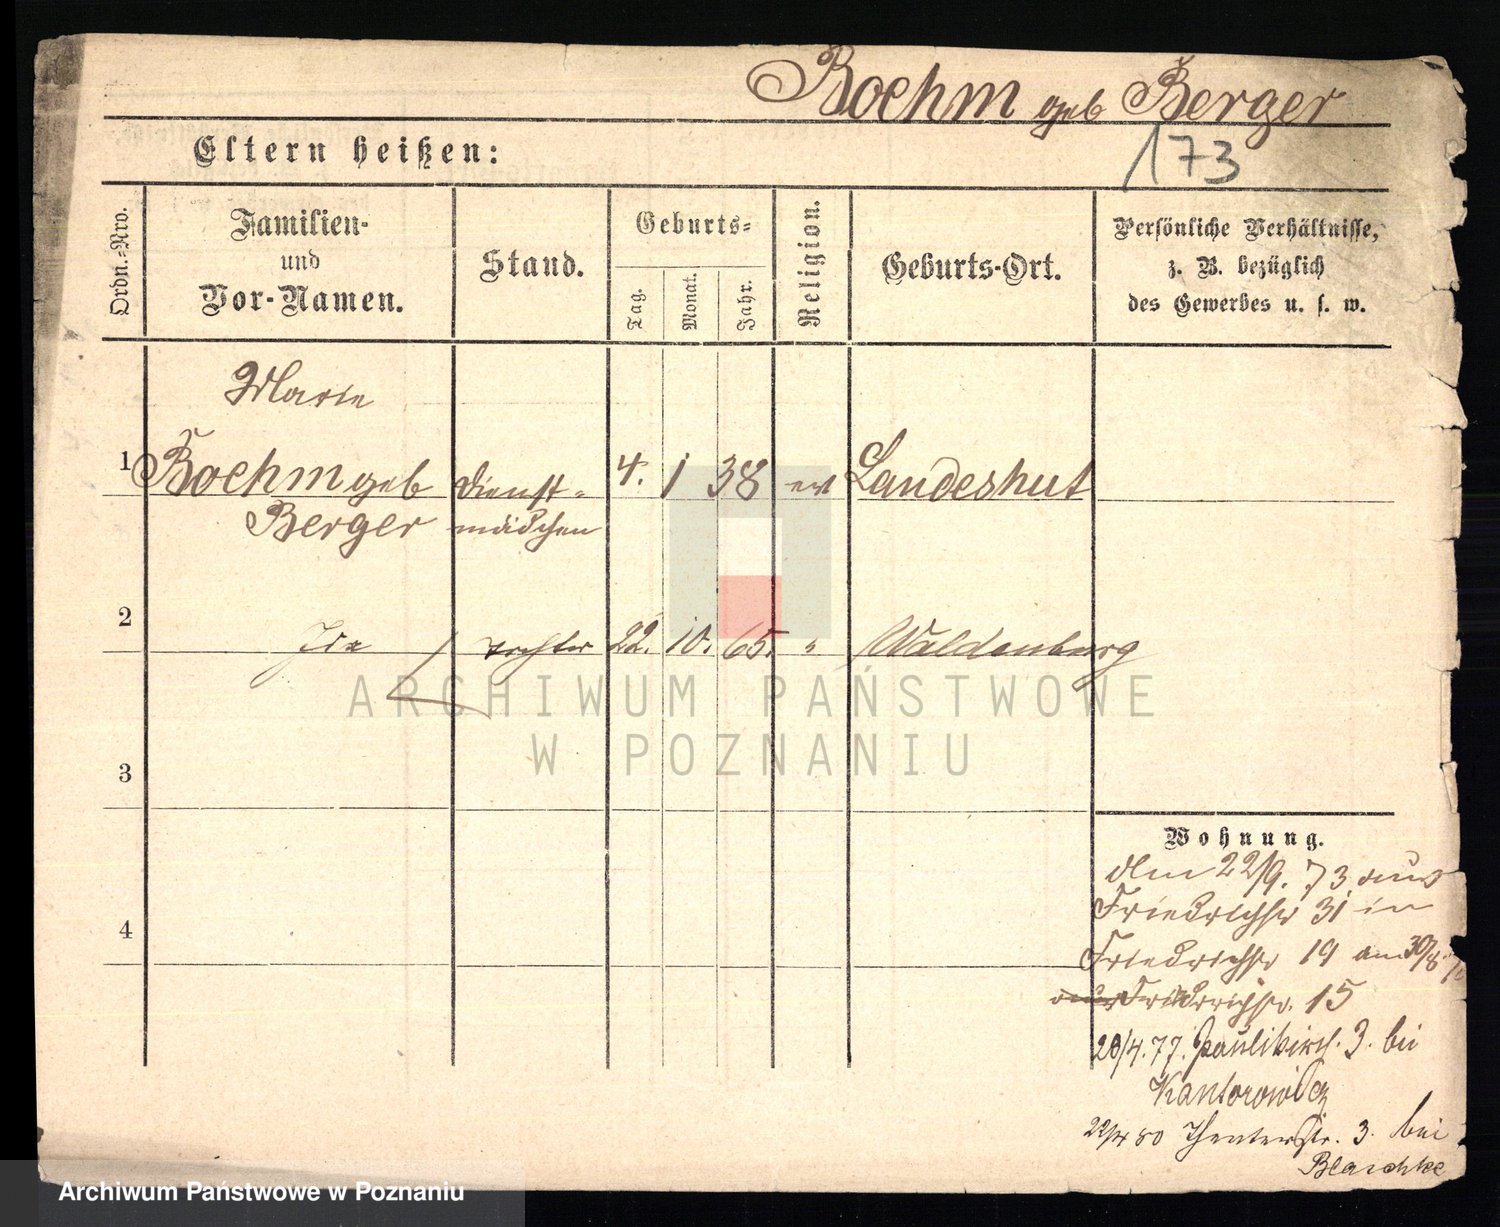 Boehm geb Berger
173
Eltern heißen:
Ordn.-Nro.
Familien-
und
Vor-Namen.
Stand.
Geburts-
Tag.
Monat.
Jahr.
Religion.
Geburts-Ort.
Persönliche Verhältnisse,
z. B. bezüglich
des Gewerbes u. s. w.
Marie
1 Boehm geb Dienst- 4. 1 38 ev Landeshut
Berger mädchen
2 Ida Tochter 22. 10. 65. " Waldenburg
3
4
Wohnung.
den 22/9. 73 aus
Friedrichstr 31 in
Friedrichstr 19 am 30/8
Friedrichstr. 15
20/4. 77. Paulikirch. 3. bei
Kantorowicz
22/4 80 Theaterstr. 3. bei
Blaschke
ARCHIWUM PAŃSTWOWE
W POZNANIU
Archiwum Państwowe w Poznaniu